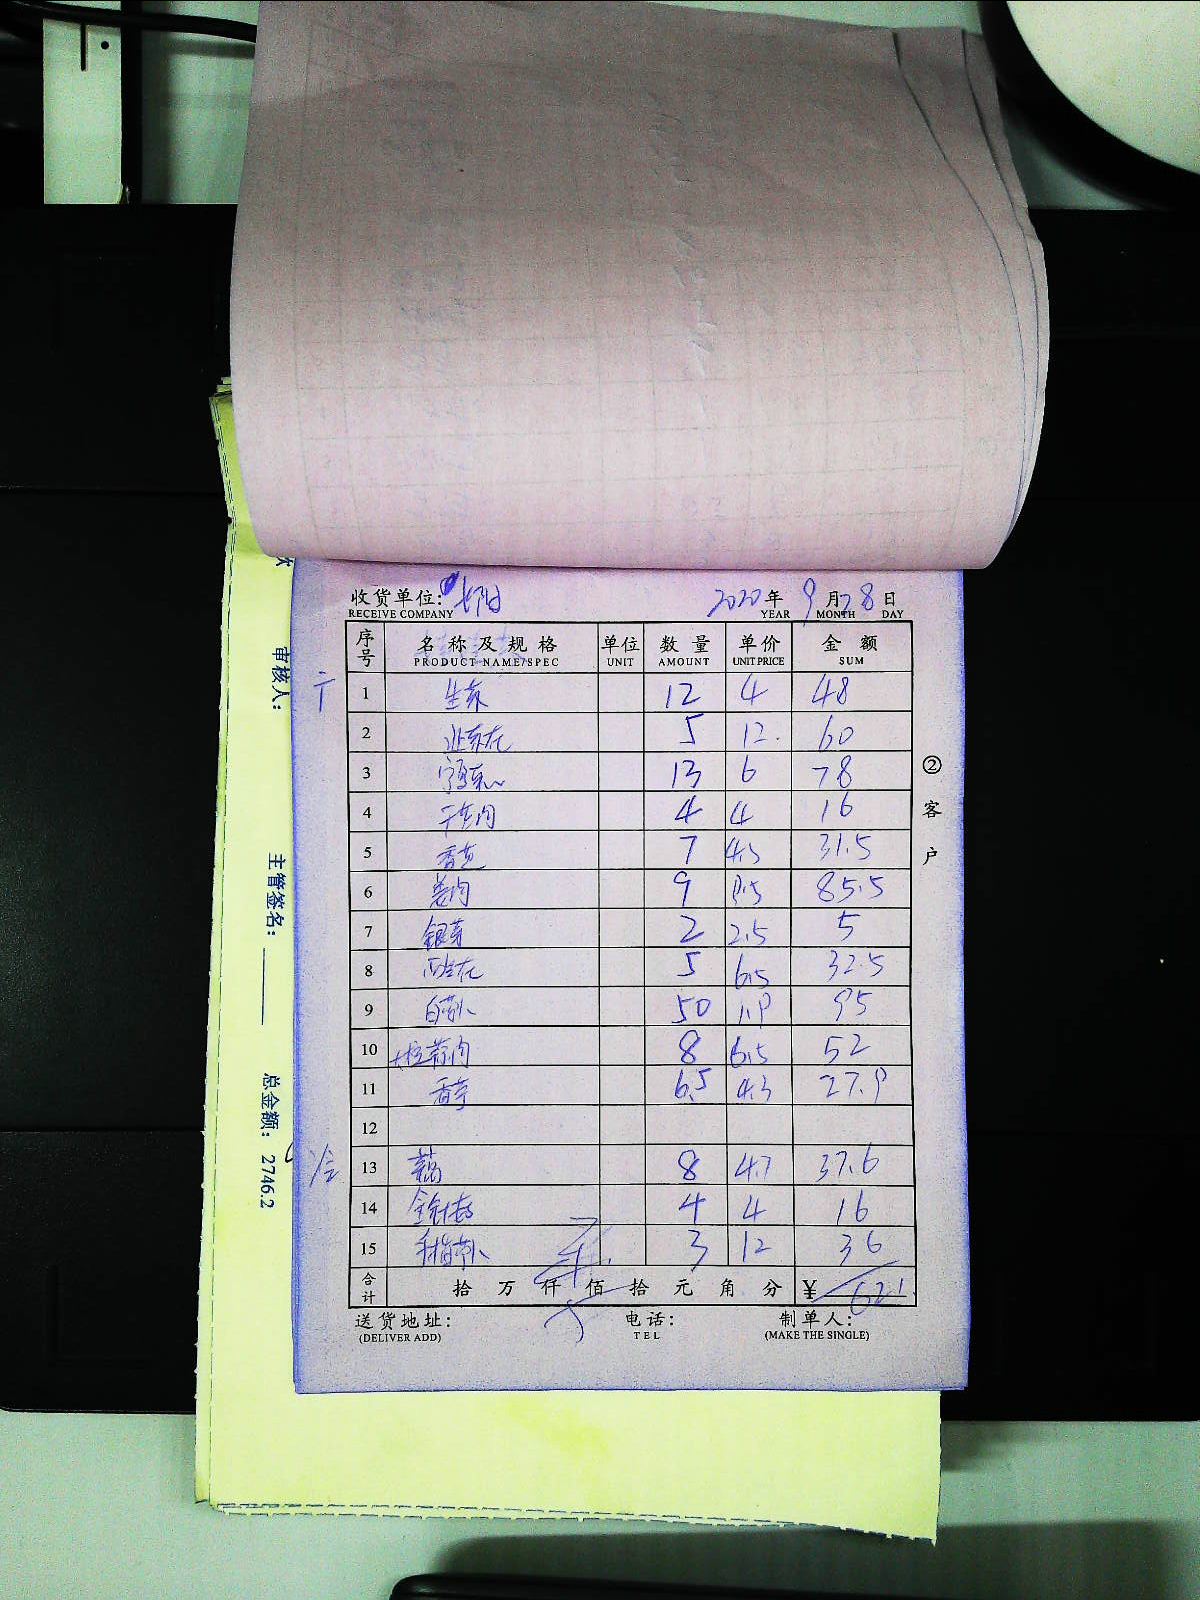 收货单位: 2020年 9月28日
RECEIVE COMPANY YEAR MONTH DAY
序号 名称及规格 单位 数量 单价 金额
PRODUCT NAME/SPEC UNIT AMOUNT UNIT PRICE SUM
1 生菜 12 4 48
2 5 12. 60
3 13 6 78
4 4 4 16
5 香芫 7 4.5 31.5
6 姜肉 9 9.5 85.5
7 银芽 2 2.5 5
8 5 6.5 32.5
9 白萝卜 50 1.9 95
10 大粒蒜肉 8 6.5 52
11 香芋 6.5 4.3 27.9
12
13 8 4.7 37.6
14 金针菇 4 4 16
15 手指萝卜 3 12 36
合计 拾 万 仟 佰 拾 元 角 分 ¥ 621
送货地址: 电话: 制单人:
(DELIVER ADD) TEL (MAKE THE SINGLE)
② 客户
审核人:
主管签名:
总金额: 2746.2